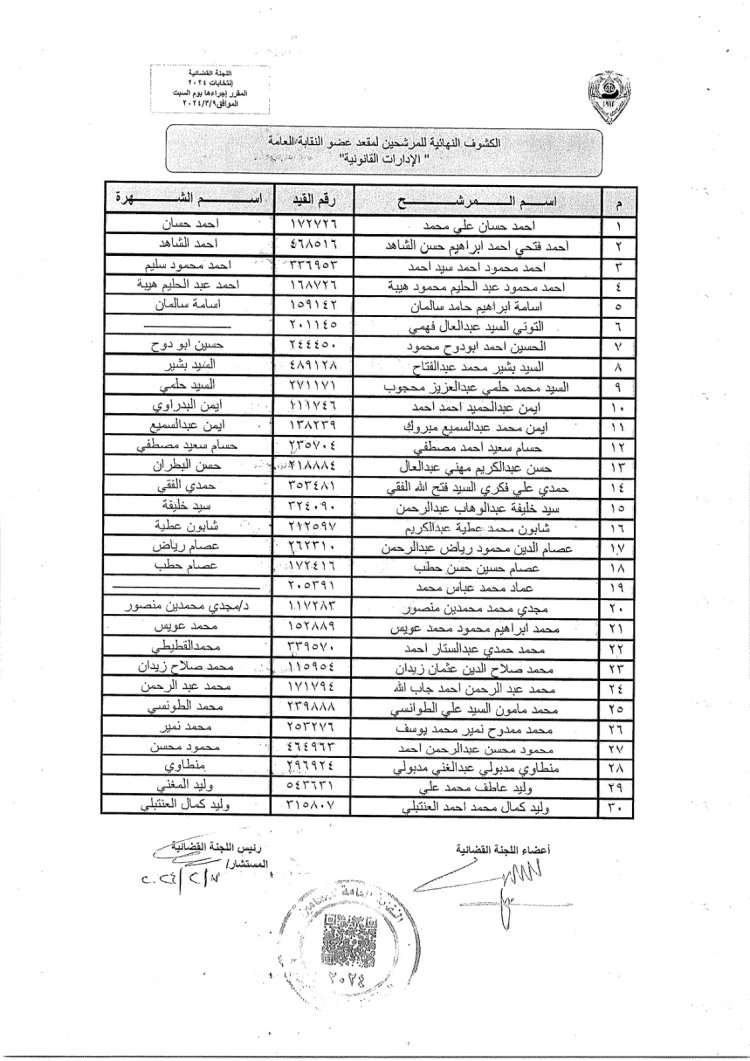 اللجنة القضائية
إنتخابات ٢٠٢٤
المقرر إجراءها يوم السبت
الموافق ٢٠٢٤/٣/٩
١٩١٢
الكشوف النهائية للمرشحين لمقعد عضو النقابة العامة
" الإدارات القانونية"
م اسم المرشح رقم القيد اسم الشهرة
١ احمد حسان علي محمد ١٧٢٧٢٦ احمد حسان
٢ احمد فتحي احمد ابراهيم حسن الشاهد ٤٦٨٥١٦ احمد الشاهد
٣ احمد محمود احمد سيد احمد ٣٣٦٩٥٣ احمد محمود سليم
٤ احمد محمود عبد الحليم محمود هيبة ١٦٨٧٢٦ احمد عبد الحليم هيبة
٥ اسامة ابراهيم حامد سالمان ١٥٩١٤٢ اسامة سالمان
٦ التوني السيد عبدالعال فهمي ٢٠١١٤٥
٧ الحسين احمد ابودوح محمود ٢٤٤٤٥٠ حسين ابو دوح
٨ السيد بشير محمد عبدالفتاح ٤٨٩١٢٨ السيد بشير
٩ السيد محمد حلمي عبدالعزيز محجوب ٢٧١١٧١ السيد حلمي
١٠ ايمن عبدالحميد احمد احمد ١١١٧٤٦ ايمن البدراوي
١١ ايمن محمد عبدالسميع مبروك ١٣٨٢٣٩ ايمن عبدالسميع
١٢ حسام سعيد احمد مصطفي ٢٣٥٧٠٤ حسام سعيد مصطفي
١٣ حسن عبدالكريم مهني عبدالعال ٢١٨٨٨٤ حسن البطران
١٤ حمدي علي فكري السيد فتح الله الفقي ٣٥٣٤٨١ حمدي الفقي
١٥ سيد خليفة عبدالوهاب عبدالرحمن ٣٢٤٠٩٠ سيد خليفة
١٦ شابون محمد عطية عبدالكريم ٢١٢٥٩٧ شابون عطية
١٧ عصام الدين محمود رياض عبدالرحمن ٢٦٢٣١٠ عصام رياض
١٨ عصام حسين حسن حطب ١٧٢٤١٦ عصام حطب
١٩ عماد محمد عباس محمد ٢٠٥٣٩١
٢٠ مجدي محمد محمدين منصور ١١٧٢٨٣ د/مجدي محمدين منصور
٢١ محمد ابراهيم محمود محمد عويس ١٥٢٨٨٩ محمد عويس
٢٢ محمد حمدي عبدالستار احمد ٣٣٩٥٧٠ محمدالقطيطي
٢٣ محمد صلاح الدين عثمان زيدان ١١٥٩٥٤ محمد صلاح زيدان
٢٤ محمد عبد الرحمن احمد جاب الله ١٧١٧٩٤ محمد عبد الرحمن
٢٥ محمد مامون السيد علي الطوانسي ٢٣٩٨٨٨ محمد الطونسي
٢٦ محمد ممدوح نمير محمد يوسف ٢٥٣٢٧٦ محمد نمير
٢٧ محمود محسن عبدالرحمن احمد ٤٦٤٩٦٣ محمود محسن
٢٨ منطاوي مدبولي عبدالغني مدبولي ٢٩٦٩٢٤ منطاوي
٢٩ وليد عاطف محمد علي ٥٤٣٦٣١ وليد المغني
٣٠ وليد كمال محمد احمد العنتبلي ٣١٥٨٠٧ وليد كمال العنتبلي
أعضاء اللجنة القضائية
رئيس اللجنة القضائية
المستشار/
النقابة العامة
٢٠٢٤